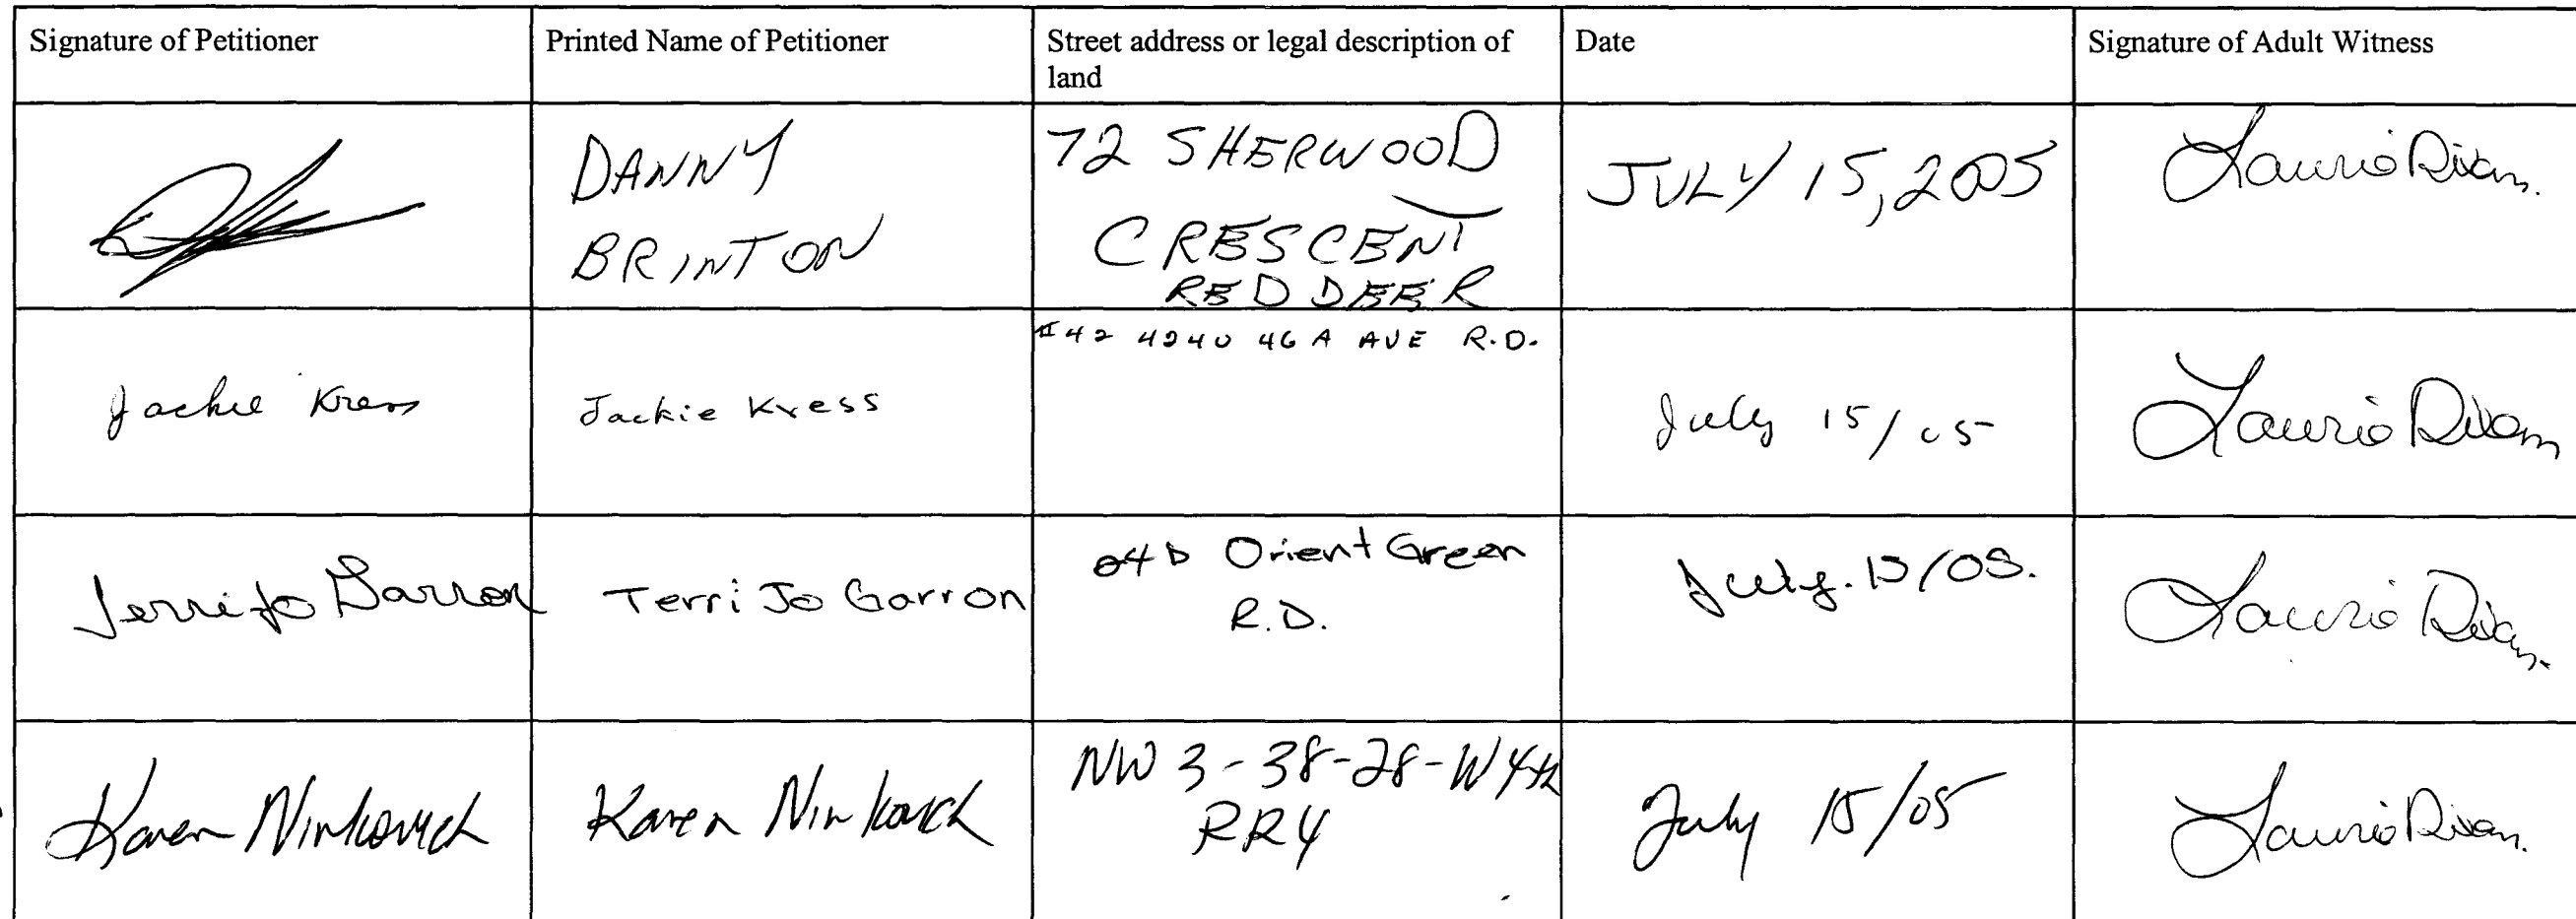 Signature of Petitioner
Printed Name of Petitioner
Street address or legal description of
land
Date
Signature of Adult Witness
DANNY
BRINTON
72 SHERWOOD
CRESCENT
RED DEER
JULY 15, 2005
Laurie
Jackie Kress
Jackie Kress
#42 4240 46A AVE R.D.
July 15/05
Laurie
Terri Jo Garron
Terri Jo Garron
04D Orient Green
R.D.
July. 15/05.
Laurie
Karen Ninkovich
Karen Ninkovich
NW 3-38-28-W4th
RR4
July 15/05
Laurie